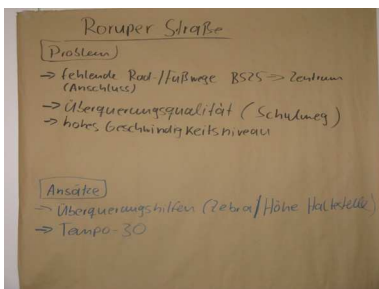 Roruper Straße
Problem
→ fehlende Rad-/Fußwege B525 → Zentrum
(Anschluss)
→ Überquerungsqualität (Schulweg)
→ hohes Geschwindigkeitsniveau
Ansätze
→ Überquerungshilfen (Zebra/Höhe Haltestelle)
→ Tempo-30